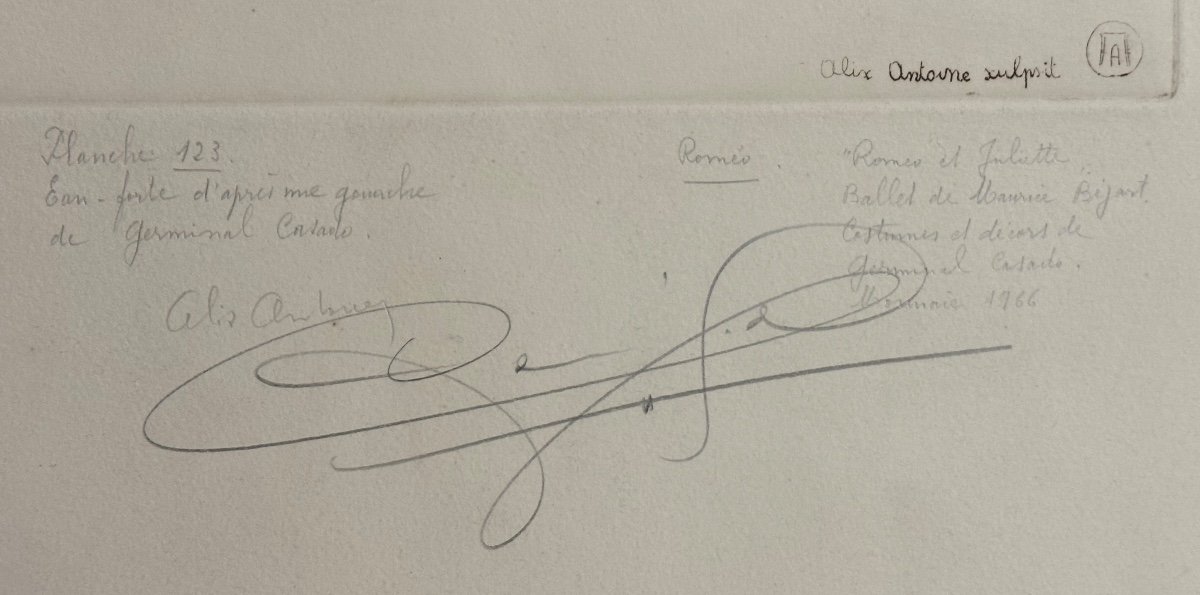 Alix Antoine sulpsit
A
Planche 123.
Eau-forte d'après une gouache
de Germinal Casado.
Roméo.
"Romeo et Juliette
Ballet de Maurice Béjart.
Costumes et décors de
Germinal Casado.
Monnaie 1966
Alix Antoine